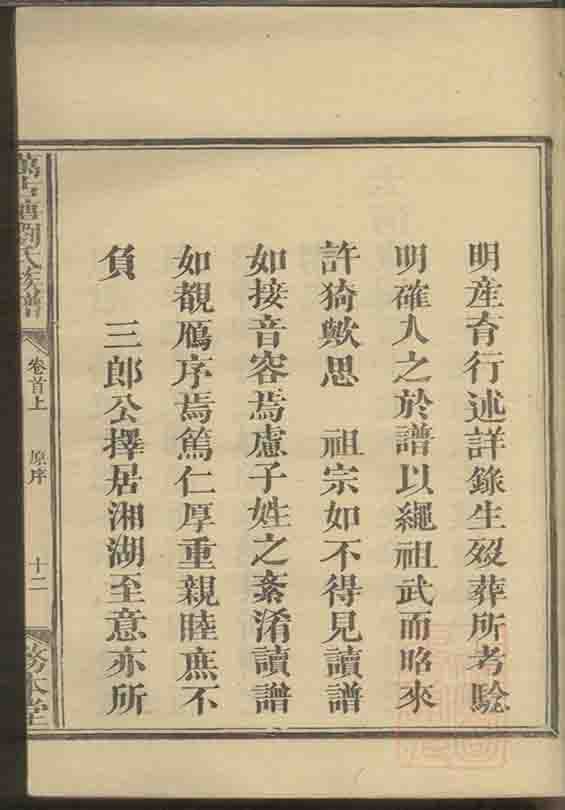 明產育行述詳錄生歿葬所考驗
明確人之於譜以繩祖武而昭來
許猗歟思 祖宗如不得見讀譜
如接音容焉慮子姓之紊淆讀譜
如覩鴈序焉篤仁厚重親睦庶不
負 三郎公擇居湘湖至意亦所
劉氏族譜
卷首上 原序 十二
務本堂